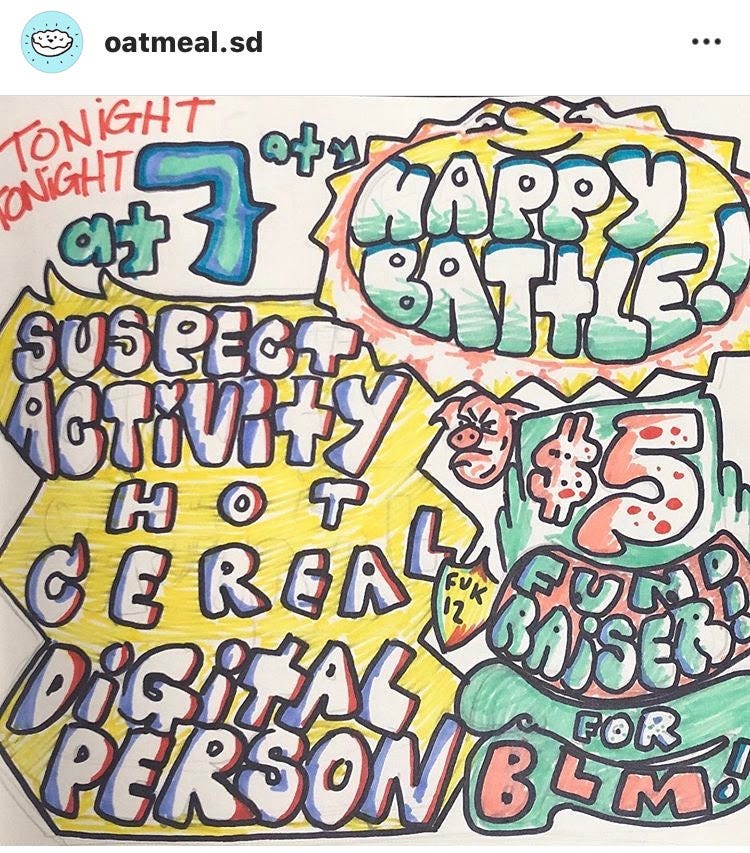 oatmeal.sd
TONiGHT
TONiGHT
at 7 at
HAPPY
BATTLE!
SUSPECT
ACTIVITY
HOT
CEREAL
DiGiTAL
PERSON
$5
FUK
12
FUND
RAiSER!
FOR
BLM!